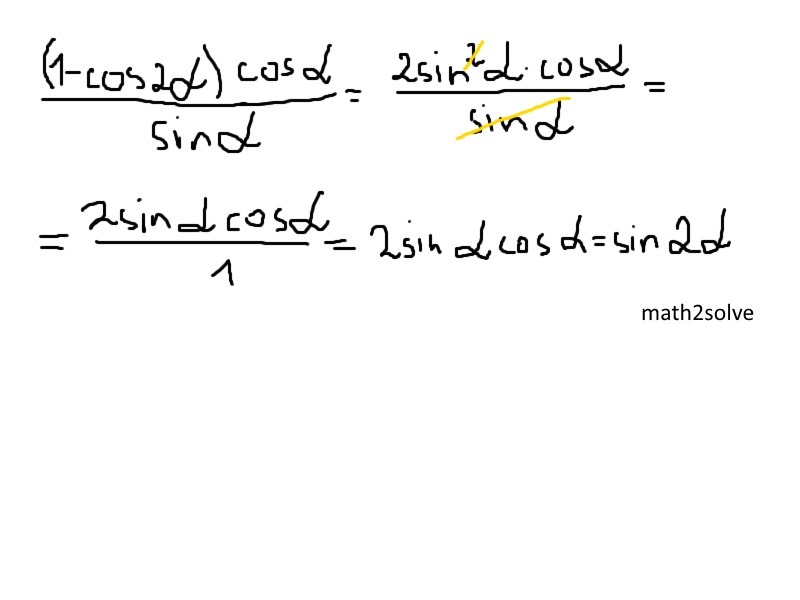 (1-cos2α) cosα / sinα = 2sin²α · cosα / sinα =
= 2sinα cosα / 1 = 2sinα cosα = sin2α
math2solve